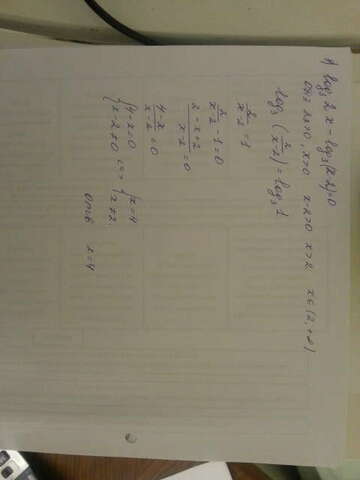 1) log₃ 2x - log₃(x-2)=0
ОДЗ 2x>0, x>0   x-2>0   x>2   x∈(2,+∞)
log₃ (2/x-2) = log₃ 1
2/x-2 = 1
2/x-2 - 1 = 0
2-x+2/x-2 = 0
4-x/x-2 = 0
{4-x=0
{x-2≠0 <=> {x=4
{x≠2
Отв   x=4